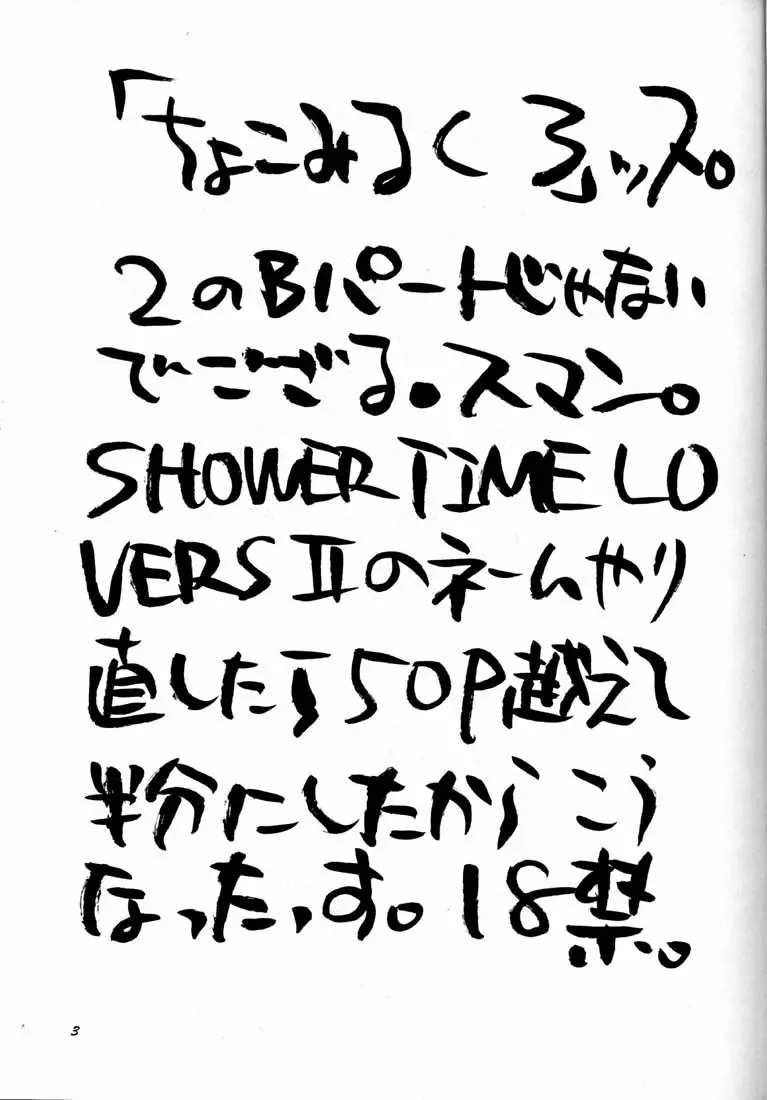 「ちょこみるく 3」ッス。
2のBパートじゃない
でござる。スマン。
SHOWER TIME LO
VERS Ⅱのネームやり
直したら50P越えて
半分にしたからこう
なったっす。18禁。
3